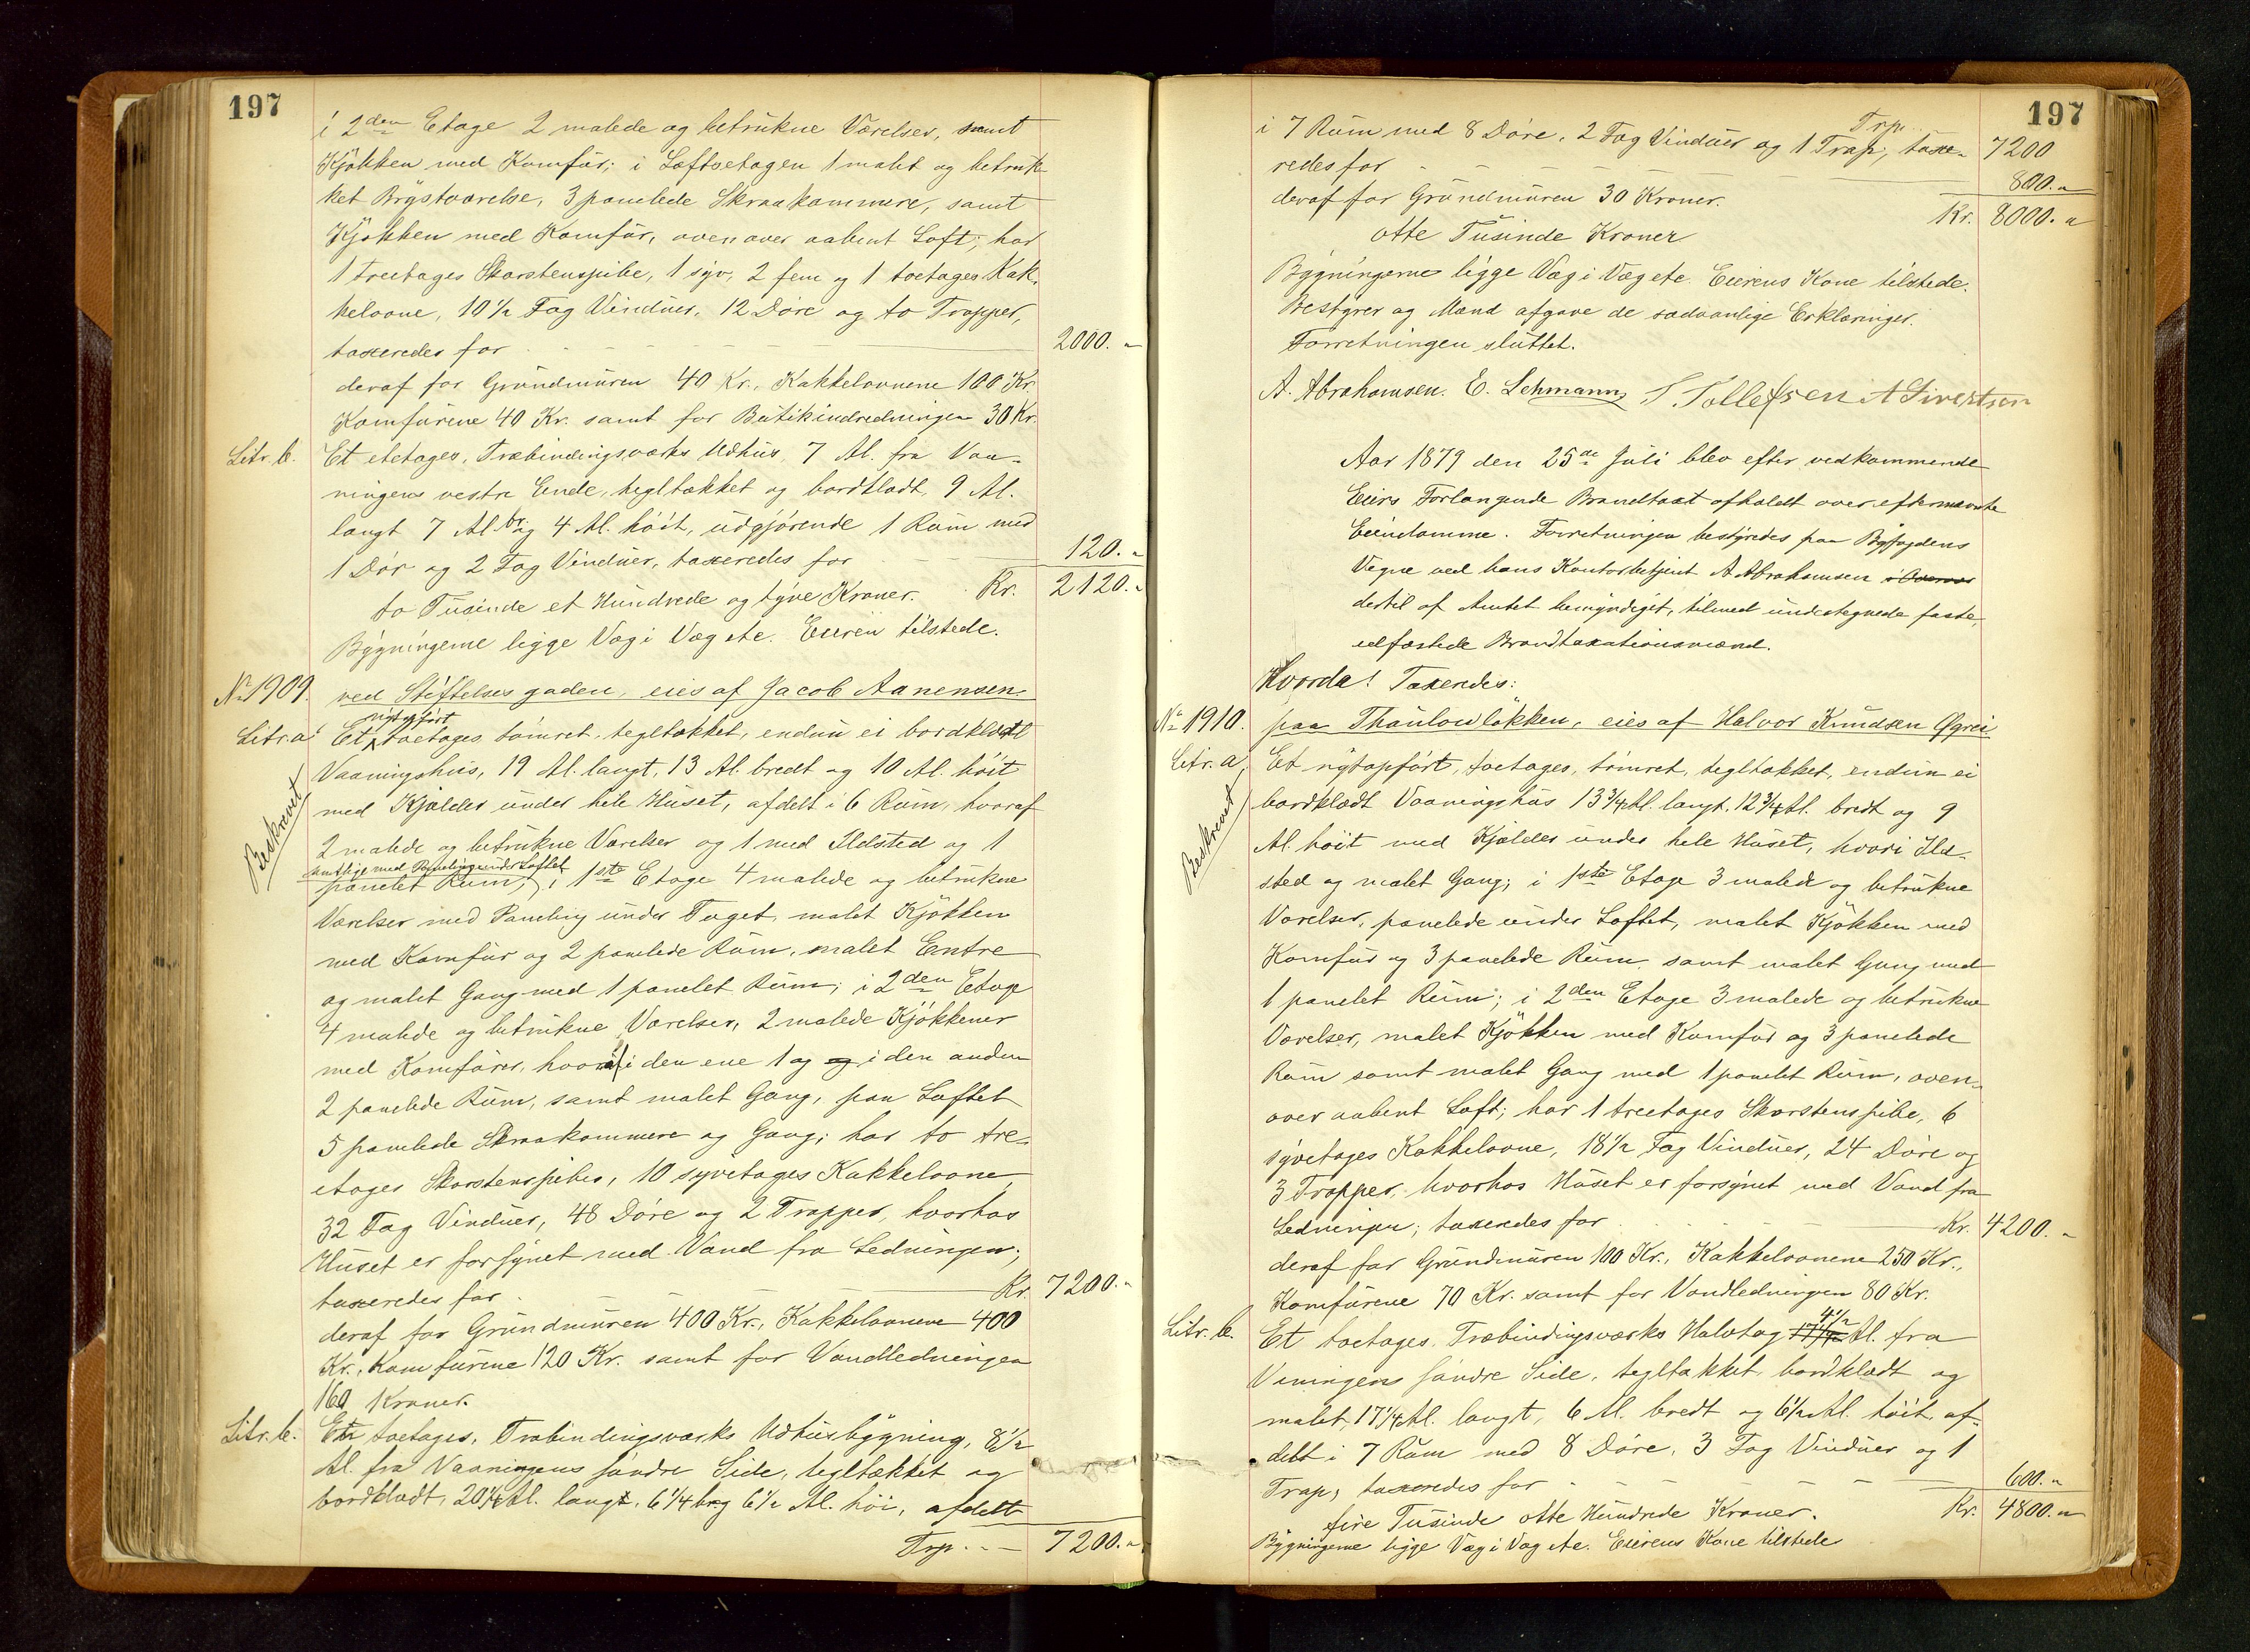 197
i 2den Etage 2 malede og betrukne Værelser, samt
Kjøkken med Komfur; i Loftsetagen 1 malet og betruk-
ket Brystværelse, 3 panelede Skraakammere, samt
Kjøkken med Komfur, ovenover aabent Loft; har
1 treetages Skorstenspibe, 1 syv, 2 fem og 1 toetages Kak-
kelovne, 10 1/2 Fag Vinduer, 12 Døre og to Trapper,
taxeredes for 2000.
deraf for Grundmuren 40 Kr., Kakkelovnene 100 Kr.
Komfurene 40 Kr. samt for Butikindredningen 30 Kr.
Litr. b. Et etetages, Træbindingsværks Udhus, 7 Al. fra Vaa-
ningens vestre Ende, tegltækket og bordklædt, 9 Al.
langt 7 Al. br. og 4 Al. höit, udgjørende 1 Rum med
1 Dør og 2 Fag Vinduer, taxeredes for 120.
to Tusinde et Hundrede og tyve Kroner. Kr. 2120.
Bygningerne ligge Væg i Væg etc. Eieren tilstede.
No 1909. ved Stiftelsesgaden, eies af Jacob Aanensen
nyopført
Litr. a. Et toetages tømret, tegltækket, endnu ei bordklædt
Vaaningshus, 19 Al. langt, 13 Al. bredt og 10 Al. höit
med Kjælder under hele Huset, afdelt i 6 Rum, hvoraf
Beskrevet
2 malede og betrukne Værelser og 1 med Ildsted og 1
samtlige med Paneling under Loftet
panelet Rum; i 1ste Etage 4 malede og betrukne
Værelser med Paneling under Taget, malet Kjøkken
med Komfur og 2 panelede Rum, malet Entre
og malet Gang med 1 panelet Rum; i 2den Etage
4 malede og betrukne Værelser, 2 malede Kjøkkener
med Komfurer, hvoraf i den ene 1 og og i den anden
2 panelede Rum, samt malet Gang, paa Loftet
5 panelede Skraakammere og Gang; har to tre-
etages Skorstenspiber, 10 syvetages Kakkelovne,
32 Fag Vinduer, 48 Døre og 2 Trapper, hvorhos
Huset er forsynet med Vand fra Ledningen;
taxeredes for Kr. 7200.
deraf for Grundmuren 400 Kr., Kakkelovnene 400
Kr., Komfurene 120 Kr. samt for Vandledningen
160 Kroner.
Litr. b. En toetages, Træbindingsværks Udhusbygning, 8 1/2
Al. fra Vaaningens søndre Side, tegltækket og
bordklædt, 20 1/4 Al. langt, 6 1/4 br. og 6 1/2 Al. höi, afdelt
Trp. 7200.
197
Trp. 7200
i 7 Rum med 8 Døre, 2 Fag Vinduer og 1 Trap; taxe-
redes for 800.
deraf for Grundmuren 30 Kroner.
otte Tusinde Kroner Kr. 8000.
Bygningerne ligge Væg i Væg etc. Eierens Kone tilstede.
Bestyrer og Mænd afgave de sædvanlige Erklæringer.
Forretningen sluttet.
A. Abrahamsen. E. Lehmann T. Tollefsen A Sivertsen
Aar 1879 den 25de Juli blev efter vedkommende
Eiers Forlangende Brandtaxt afholdt over efternævnte
Eiendomme. Forretningen bestyredes paa Byfogdens
Vegne ved hans Kontorbetjent A Abrahamsen
dertil af Amtet bemyndiget, tilmed undertegnede faste,
edfæstede Brandtaxationsmænd.
Hvorda! Taxeredes:
No 1910. paa Thaulowløkken, eies af Halvor Knudsen Øgrei
Litr. a. Et nyopført, toetages, tømret, tegltækket, endnu ei
bordklædt Vaaningshus 13 3/4 Al. langt, 12 3/4 Al. bredt og 9
Beskrevet
Al. höit med Kjælder under hele Huset, hvori Ild-
sted og malet Gang; i 1ste Etage 3 malede og betrukne
Værelser, panelede under Loftet, malet Kjøkken med
Komfur og 3 panelede Rum, samt malet Gang med
1 panelet Rum; i 2den Etage 3 malede og betrukne
Værelser, malet Kjøkken med Komfur og 3 panelede
Rum samt malet Gang med 1 panelet Rum, oven-
over aabent Loft; har 1 treetages Skorstenspibe, 6
syvetages Kakkelovne, 18 1/2 Fag Vinduer, 24 Døre og
3 Trapper, hvorhos Huset er forsynet med Vand fra
Ledningen; taxeredes for Kr. 4200.
deraf for Grundmuren 100 Kr., Kakkelovnene 250 Kr.,
Komfurene 70 Kr. samt for Vandledningen 80 Kr.
4 1/2
Litr. b. Et toetages, Træbindingsværks Halvtag 17 1/4 Al. fra
Vaningens søndre Side, tegltækket, bordklædt og
malet, 17 1/4 Al. langt, 6 Al. bredt og 6 1/2 Al. höit, af-
delt i 7 Rum med 8 Døre, 3 Fag Vinduer og 1
Trap, taxeredes for 600.
fire Tusinde otte Hundrede Kroner. Kr. 4800.
Bygningerne ligge Væg i Væg etc. Eierens Kone tilstede